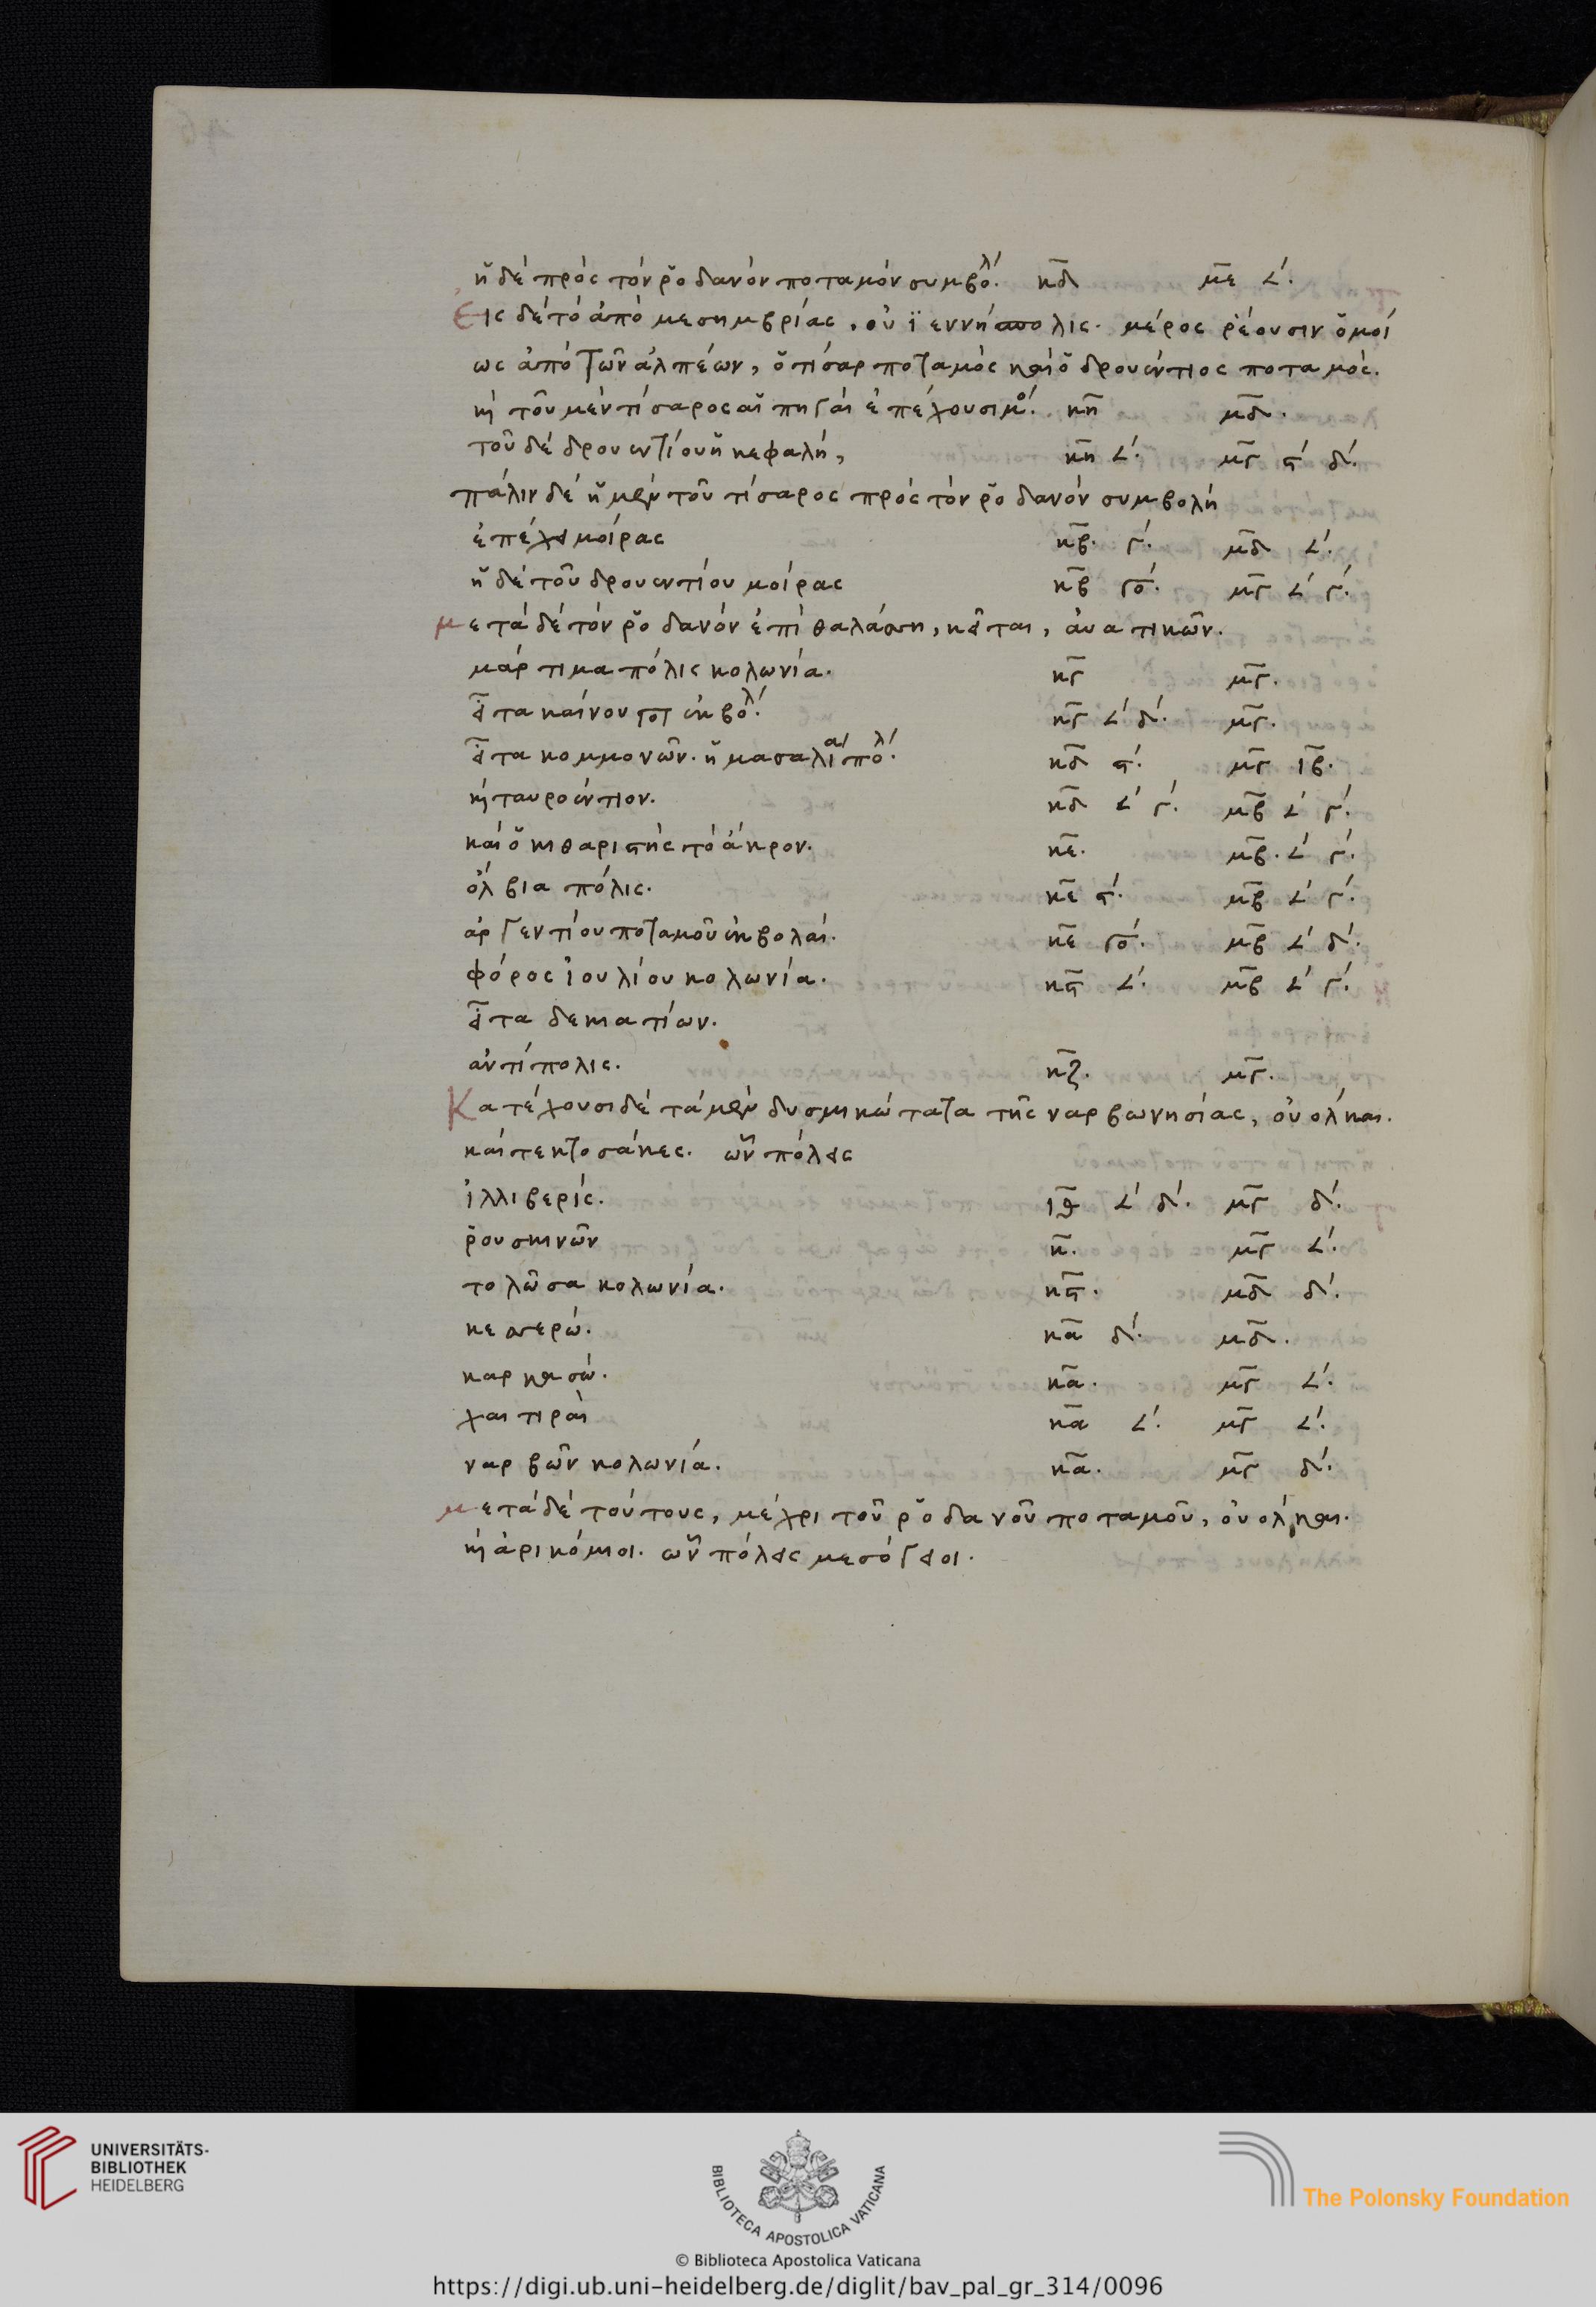 ἡ δὲ πρὸς τὸν ῥοδανὸν ποταμὸν συμβολ´. κ̅δ̅ μ̅ε̅ ∠´.
Εἰς δὲ τὸ ἀπὸ μεσημβρίας, οὐϊεννήσπολις. μέρος ῥέουσιν ὁμοί
ως ἀπὸ τῶν ἀλπέων, ὁ τίσαρ ποταμὸς καὶ ὁ δρουέντιος ποταμός.
κ̀ τοῦ μὲν τίσαρος αἱ πηγαὶ ἐπέχουσι μο´. κ̅η̅ μ̅δ̅.
τοῦ δὲ δρουεντίου ἡ κεφαλὴ, κ̅η̅ ∠´. μ̅γ̅ ϛ´ δ´.
πάλιν δὲ ἡ μὲν τοῦ τίσαρος πρὸς τὸν ῥοδανὸν συμβολὴ
ἐπέχει μοίρας κ̅β̅. γ´. μ̅δ̅ ∠´.
ἡ δὲ τοῦ δρουεντίου μοίρας κ̅β̅ γο´. μ̅γ̅ ∠´ γ´.
μετὰ δὲ τὸν ῥοδανὸν ἐπὶ θαλάσση, κεῖται, ἀυατικῶν.
μάρτιμα πόλις κολωνία. κ̅γ̅ μ̅γ̅.
εἶτα καίνου ποτ ἐκβολ´. κ̅γ̅ ∠´ δ´. μ̅γ̅.
εἶτα κομμονῶν. ἡ μασαλία πολ´. κ̅δ̅ ϛ´. μ̅γ̅ ι̅β̅.
κ̀ ταυροέντιον. κ̅δ̅ ∠´ γ´. μ̅β̅ ∠´ γ´.
καὶ ὁ κιθαριστὴς τὸ ἄκρον. κ̅ε̅. μ̅β̅. ∠´ γ´.
ὀλβια πόλις. κ̅ε̅ ϛ´. μ̅β̅ ∠´ γ´.
ἀργεντίου ποταμοῦ ἐκβολαί. κ̅ε̅ γο´. μ̅β̅ ∠´ δ´.
φόρος ἰουλίου κολωνία. κ̅ϛ̅ ∠´. μ̅β̅ ∠´ γ´.
εἶτα δεκιατίων.
ἀντίπολις. κ̅ζ̅. μ̅γ̅.
Κατέχουσι δὲ τὰ μὲν δυσμικώτατα τῆς ναρβωνησίας, οὐόλκαι.
καὶ τεκτοσάκες. ὧν πόλεις
ἰλλιβερίς. ι̅θ̅ ∠´ δ´. μ̅γ̅ δ´.
ῥουσκινῶν κ̅. μ̅γ̅ ∠´.
τολῶσα κολωνία. κ̅ϛ̅. μ̅δ̅ δ´.
κεσσερώ. κ̅α̅ δ´. μ̅δ̅.
καρκασώ. κ̅α̅. μ̅γ̅ ∠´.
χαιτιραὶ κ̅α̅ ∠´. μ̅γ̅ ∠´.
ναρβῶν κολωνία. κ̅α̅. μ̅γ̅ δ´.
μετὰ δὲ τούτους, μέχρι τοῦ ῥοδανοῦ ποταμοῦ, οὐόλκαι.
κ̀ ἀρικόμιοι. ὧν πόλεις μεσόγειοι.
UNIVERSITÄTS-
BIBLIOTHEK
HEIDELBERG
BIBLIOTECA APOSTOLICA VATICANA
© Biblioteca Apostolica Vaticana
The Polonsky Foundation
https://digi.ub.uni-heidelberg.de/diglit/bav_pal_gr_314/0096